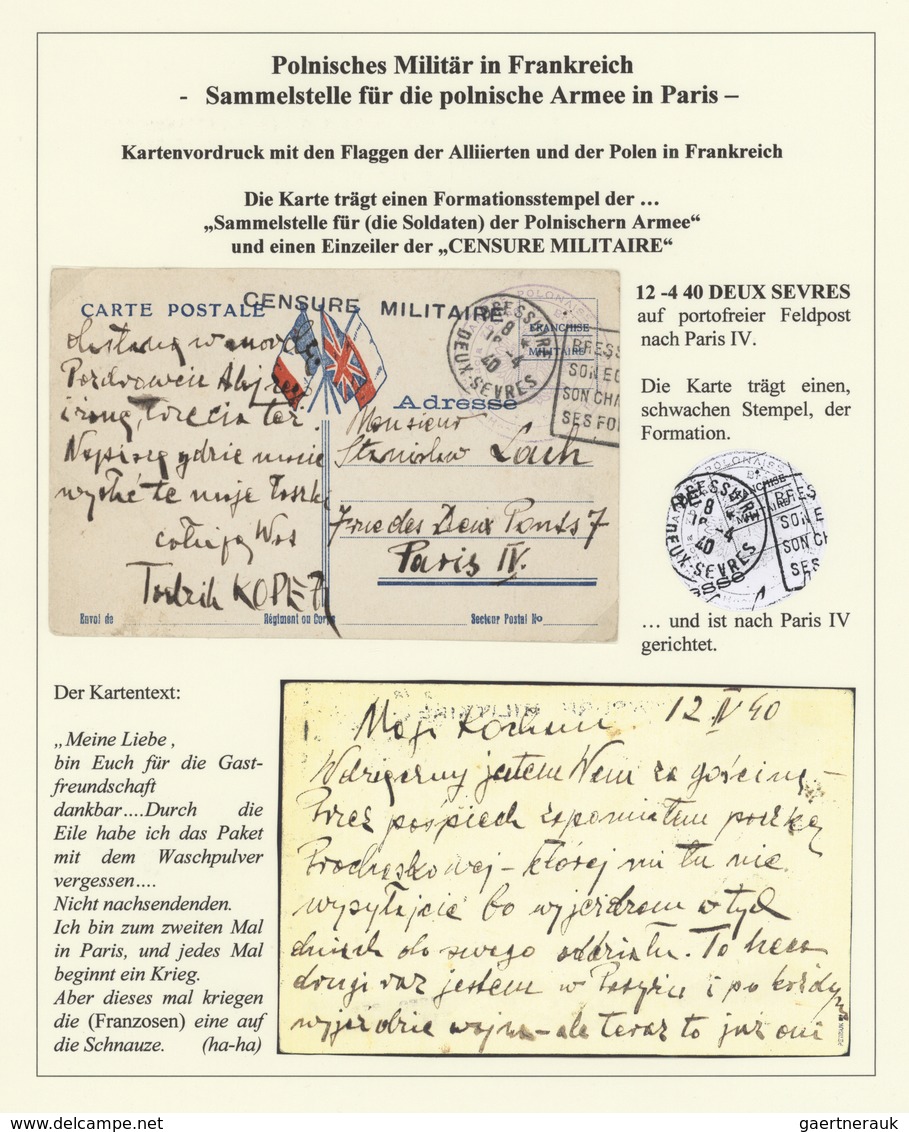 Polnisches Militär in Frankreich
- Sammelstelle für die polnische Armee in Paris –
Kartenvordruck mit den Flaggen der Alliierten und der Polen in Frankreich
Die Karte trägt einen Formationsstempel der …
„Sammelstelle für (die Soldaten) der Polnischern Armee“
und einen Einzeiler der „CENSURE MILITAIRE“
CARTE POSTALE
CENSURE MILITAIRE
POLONAISE
FRANCHISE
MILITAIRE
BRESSUIRE
18
12 -4
40
DEUX-SEVRES
BRESS
SON E
SON CHA
SES FO
Adresse
Pozdrowień
Napiszę gdzie
moje
KOPEĆ
Monsieur
Stanisław Lach
7 rue des Deux Ponts 7
Paris IV.
Envoi de
Régiment ou Corps
Secteur Postal No
12 -4 40 DEUX SEVRES
auf portofreier Feldpost
nach Paris IV.
Die Karte trägt einen,
schwachen Stempel, der
Formation.
POLONAISE
DEUX-SEVRES
40
SON E
SON CH
SES
… und ist nach Paris IV
gerichtet.
Der Kartentext:
„Meine Liebe ,
bin Euch für die Gast-
freundschaft
dankbar….Durch die
Eile habe ich das Paket
mit dem Waschpulver
vergessen….
Nicht nachsendenden.
Ich bin zum zweiten Mal
in Paris, und jedes Mal
beginnt ein Krieg.
Aber dieses mal kriegen
die (Franzosen) eine auf
die Schnauze. (ha-ha)
Moji Kochani 12 IV 40
Wdzięczny jestem Wam za gościnę –
Przez pośpiech zapomniałem paczkę
– której mi tu nie
wysyłajcie bo wyjeżdżam w tych
dniach do swego oddziału. To
drugi raz jestem w Paryżu i po każdym
wyjeździe wojna – ale teraz to już oni
gaertnerauk